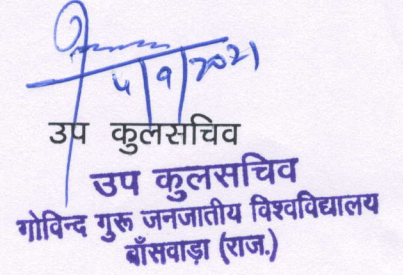 4/9/2021
उप कुलसचिव
उप कुलसचिव
गोविन्द गुरू जनजातीय विश्वविद्यालय
बाँसवाड़ा (राज.)